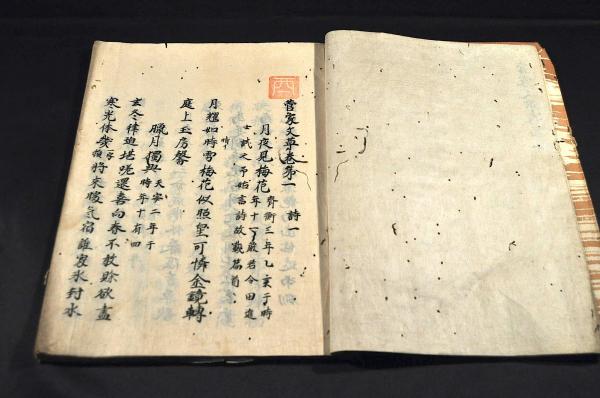 菅家文草卷第一　詩一
月夜見梅花　齊衡三年乙亥于時
年十一厳若令田進
士試之予始言詩故載篇首
月耀如時雪梅花似照星可憐金鏡轉
晴
庭上玉房馨
臘月獨興　天安二年于
時年十有四
玄冬律迫堪嗟還喜向春不敢賖欲盡
寒光休幾將来暖氣宿誰家氷封水